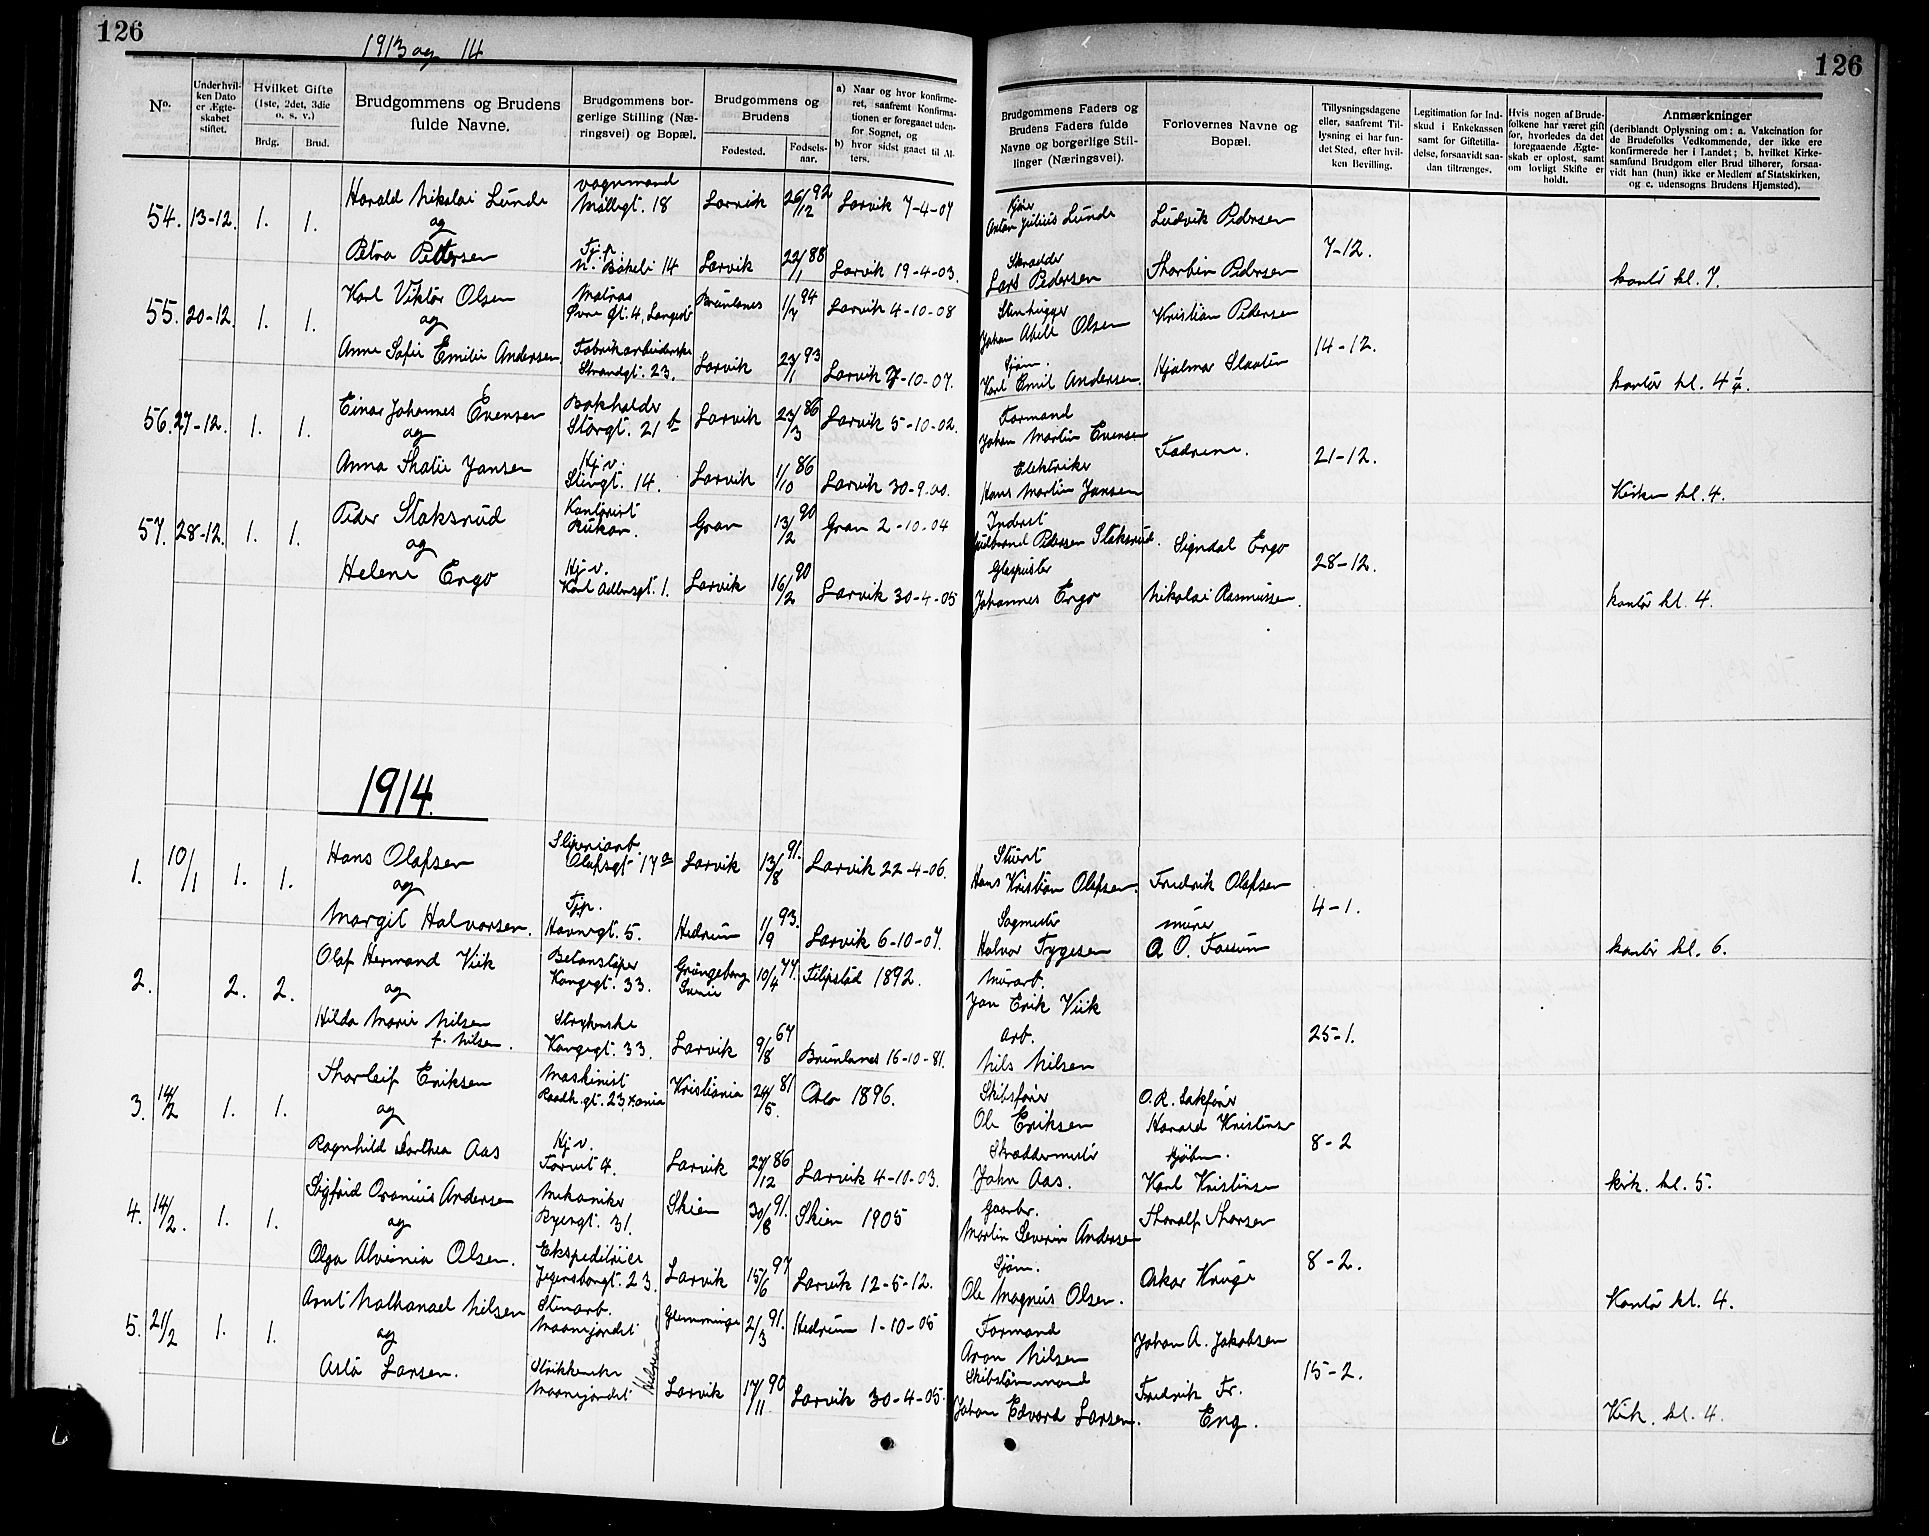 126
1913 og 14
No.
Under hvil-
ken Dato
er Ægte-
skabet
stiftet.
Hvilket Gifte
(1ste, 2det, 3die
o. s. v.)
Brdg.
Brud.
Brudgommens og Brudens
fulde Navne.
Brudgommens bor-
gerlige Stilling (Næ-
ringsvei) og Bopæl.
Brudgommens og
Brudens
Fødested.
Fødsels-
aar.
a) Naar og hvor konfirme-
ret, saafremt Konfirma-
tionen er foregaaet uden-
for Sognet, og
b) hvor sidst gaaet til Al-
ters.
54. 13-12. 1. 1.
Harald Nikolai Lunde
vognmand
Møllegt. 18
Larvik 26/12 92 Larvik 7-4-07
og
Petra Pettersen
Tj.p.
N. Bøkeli 14
Larvik 22/1 88 Larvik 19-4-03.
55. 20-12. 1. 1.
Karl Viktor Olsen
Matros
Øvre gt. 4, Langest
Brunlanes 1/7 94 Larvik 4-10-08
og
Anne Sofie Emilie Andersen
Fabrikarbeiderske
Strandgt. 23.
Larvik 23/1 93 Larvik 7-10-07.
56. 27-12. 1. 1.
Einar Johannes Evensen
Bokholder
Storgt. 21 b
Larvik 23/3 86 Larvik 5-10-02.
og
Anna Thalie Jansen
Hj.v.
Stengt. 14.
Larvik 1/10 86 Larvik 30-9-00.
57. 28-12. 1. 1.
Peder Staksrud
Kontorist
Rukan.
Gran 13/2 90 Gran 2-10-04
og
Helene Ergo
Hj.v.
Karl Adlersgt. 1.
Larvik 16/2 90 Larvik 30-4-05
1914.
1. 10/1 1. 1.
Hans Olafsen
Sliperiarb.
Olafsgt 17 a
Larvik 13/8 91. Larvik 22-4-06.
og
Margit Halvorsen.
Tjp.
Havnegt. 5.
Hedrum 1/9 93. Larvik 6-10-07.
2. 2. 2.
Olaf Hermand Viik
Betonstøper
Kongegt. 33.
Grängeberg
10/4 77. Filipstad 1892.
og
Hilda Marie Nilsen
f. Nilsen.
Strykerske
Kongegt. 33.
Larvik 9/8 67 Brunlanes 16-10-81.
3. 14/2 1. 1.
Thorleif Eriksen
Maskinist
Raadh.gt. 23, Kania
Kristiania 24/5. 81 Oslo 1896.
og
Ragnhild Dorthea Aas
Hj.v.
Torvet 4.
Larvik 27/12 86 Larvik 4-10-03.
4. 14/2. 1. 1.
Sigfrid Oranius Andersen
Mekaniker
Ryengt. 31.
Skien 30/8 91. Skien 1905
og
Olga Alvinia Olsen.
Ekspeditrice
Jegersborgt. 23.
Larvik 15/6 97 Larvik 12-5-12.
5. 21/2 1. 1.
Arnt Nathanael Nilsen
Stenarb.
Maanejordet
Glemminge 2/3 91. Hedrum 1-10-05
og
Asta Larsen.
Strikkerske
Maanejordet
Hedrum
Larvik 17/11 90 Larvik 30-4-05.
126
Brudgommens Faders og
Brudens Faders fulde
Navne og borgerlige Stil-
linger (Næringsvei).
Forlovernes Navne og
Bopæl.
Tillysningsdagene
eller, saafremt Til-
lysning ei har fun-
det Sted, efter hvil-
ken Bevilling.
Legitimation for Ind-
skud i Enkekassen
samt for Giftetilla-
delse, forsaavidt saa-
dan tiltrænges.
Hvis nogen af Brude-
folkene har været gift
før, hvorledes da det
foregaaende Ægte-
skab er opløst, samt
om lovligt Skifte er
holdt.
Anmærkninger
(deriblandt Oplysning om: a. Vakcination for
de Brudefolks Vedkommende, der ikke ere
konfirmerede her i Landet; b. hvilket Kirke-
samfund Brudgom eller Brud tilhører, forsaa-
vidt han (hun) ikke er Medlem af Statskirken,
og c. udensogns Brudens Hjemsted).
Anton Julius Lunde
Ludvik Pedersen
7-12.
Skrædder
Lars Pedersen
Thorbin Pedersen
kontor kl. 7.
Stenhugger
Johan Abell Olsen
Kristian Pedersen
14-12.
Sjøm.
Karl Emil Andersen.
Hjalmar Slaatén
kontor kl. 4 1/4.
Formand
Johan Martin Evensen
Fædrene.
21-12.
Elektriker
Hans Martin Jansen
Kirken kl. 4.
Inderst
Gulbrand Pedersen Staksrud.
Signdal Ergo
28-12.
Glaspuster
Johannes Ergo
Nikolai Rasmussen.
kontor kl. 4.
Stuert
Hans Kristian Olafsen.
Fredrik Olafsen
4-1.
Sagmester
murer
Halvor Tygesen
A. O. Faesum
kontor kl. 6.
Murarb.
Jan Erik Viik
25-1.
arb.
Nils Nilsen
Skibsfører
Ole Eriksen
O. R. Sakfører
Harald Kristensen
8-2
Skreddermester
John Aas.
kjøbm.
Karl Kristensen
kirk. kl. 5.
gaarbr.
Martin Severin Andersen
Thoralf Thorsen
8-2.
Sjøm.
Ole Magnus Olsen.
Oskar Kruge
Kontor kl. 4.
Formand
Aron Nilsen
Johan A. Jakobsen
15-2.
Skibstømmermand
Johan Edvard Larsen.
Fredrik Fr.
Eng.
Kirk. kl. 4.